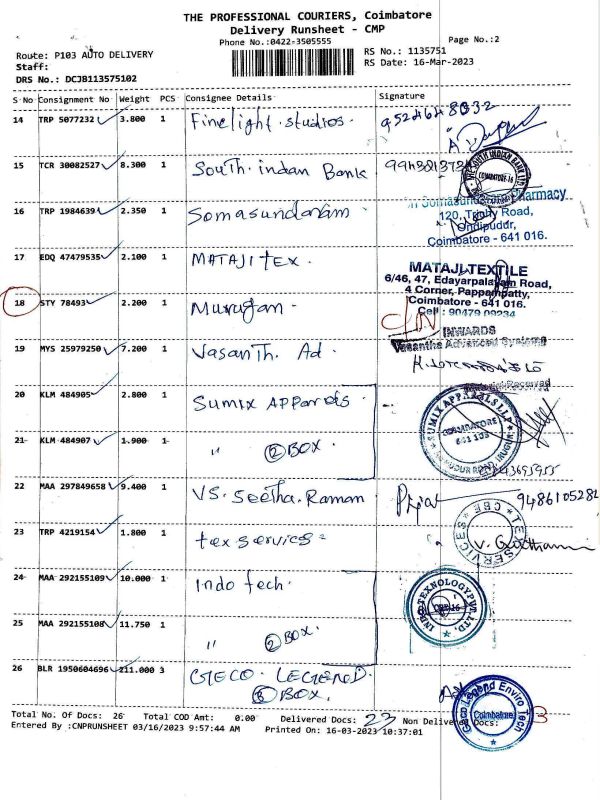 THE PROFESSIONAL COURIERS, Coimbatore
Delivery Runsheet - CMP
Phone No.:0422-3505555 Page No.:2
Route: P103 AUTO DELIVERY RS No.: 1135751
Staff: RS Date: 16-Mar-2023
DRS No.: DCJB113575102
S No Consignment No Weight PCS Consignee Details Signature
14 TRP 5077232 3.800 1 Finelight studios. 9524648032
15 TCR 30082527 8.300 1 South indan Bank
THE SOUTH INDIAN BANK LTD
COIMBATORE-16
16 TRP 1984639 2.350 1 Somasundaram
Pharmacy
120, Trinity Road,
Ondipudur,
Coimbatore - 641 016.
17 EDQ 47479535 2.100 1 MATAJI tex.
MATAJI TEXTILE
6/46, 47, Edayarpalayam Road,
4 Corner, Pappampatty,
Coimbatore - 641 016.
Cell : 90479 09234
18 STY 78493 2.200 1 Murugan.
19 MYS 25979250 7.200 1 Vasanth. Ad
INWARDS
Vasantha Advanced Systems
Material Received
20 KLM 484905 2.800 1 Sumix Apparels.
SUMIX APPARELS LLP
COIMBATORE
641 103
21 KLM 484907 1.900 1 " 2 BOX
22 MAA 297849658 9.400 1 VS. Seetha. Raman 9486105282
23 TRP 4219154 1.800 1 tex services
TEX SERVICES CBE
V. Gowtham
24 MAA 292155109 10.000 1 Indo tech.
INDO TEXNOLOGY PVT. LTD.
25 MAA 292155108 11.750 1 " 2 BOX.
26 BLR 1950604696 211.000 3 GECO. LEGEND.
3 BOX.
Geco Legend Enviro Tech
Coimbatore
Total No. Of Docs: 26 Total COD Amt: 0.00 Delivered Docs: 23 Non Delivered Docs: 3
Entered By :CNPRUNSHEET 03/16/2023 9:57:44 AM Printed On: 16-03-2023 10:37:01